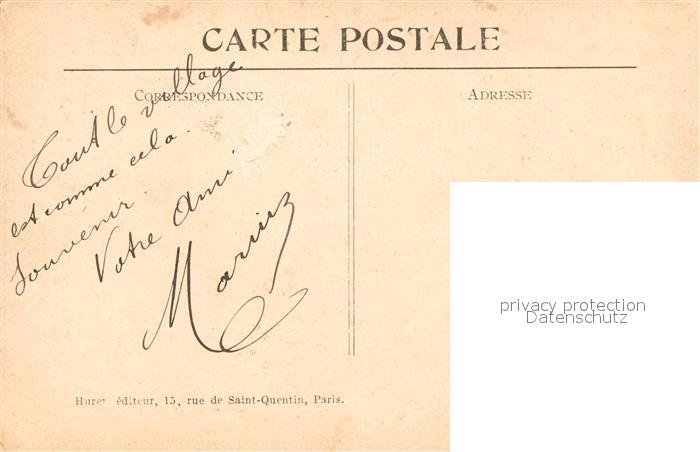 CARTE POSTALE
CORRESPONDANCE
ADRESSE
Tout le village
est comme cela.
Souvenir.
Votre Ami
privacy protection
Datenschutz
éditeur, 15, rue de Saint-Quentin, Paris.